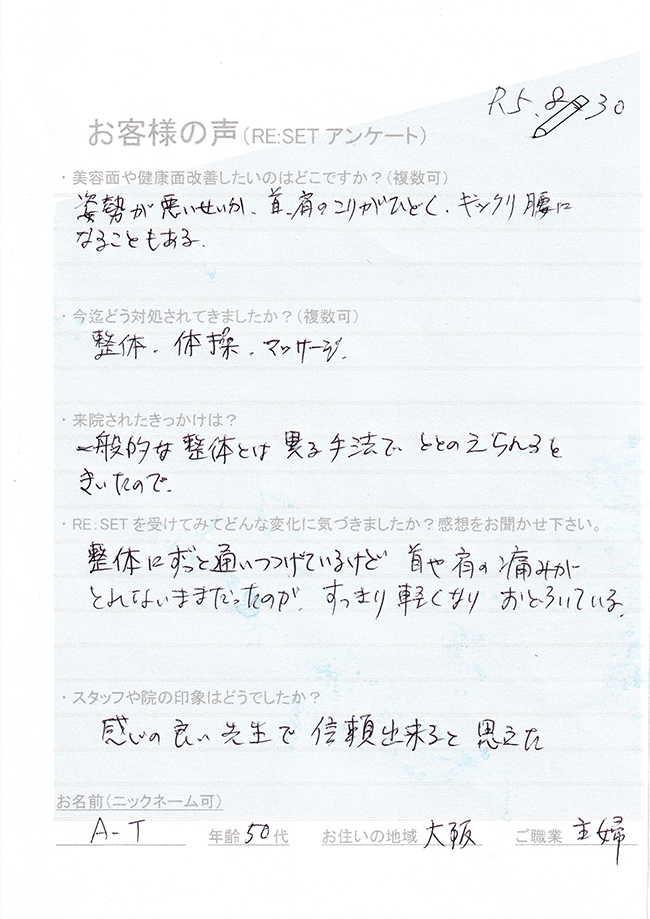 R5.8.30
お客様の声(RE:SET アンケート)
・美容面や健康面改善したいのはどこですか？(複数可)
姿勢が悪いせいか、首、肩のこりがひどく、ギックリ腰に
なることもある。
・今迄どう対処されてきましたか？(複数可)
整体、体操、マッサージ。
・来院されたきっかけは？
一般的な整体とは異る手法で、ととのえられると
きいたので。
・RE:SETを受けてみてどんな変化に気づきましたか？感想をお聞かせ下さい。
整体にずっと通いつづけているけど 首や肩の痛みが
とれないままだったのが、すっきり軽くなり おどろいている。
・スタッフや院の印象はどうでしたか？
感じの良い先生で信頼出来ると思えた
お名前(ニックネーム可)
A-T 年齢50代 お住いの地域 大阪 ご職業 主婦